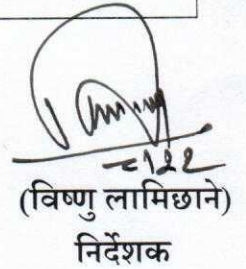 (विष्णु लामिछाने)
निर्देशक